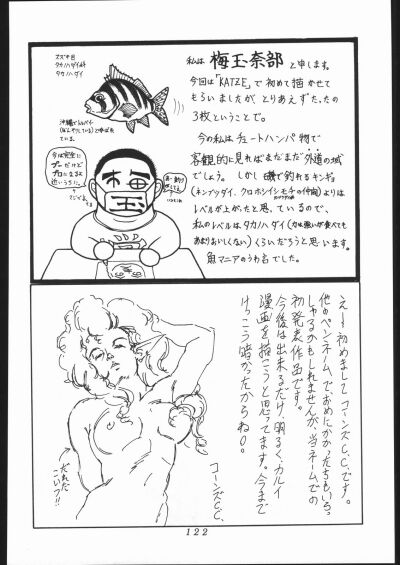 スズキ目
タカノハダイ科
タカノハダイ
私は 梅玉奈部 と申します。
今回は「KATZE」で初めて描かせて
もらいましたが、とりあえず、たったの
3枚ということで。
今の私はチュートハンパ物で
客観的に見ればまだまだ外道の域
でしょう。しかし磯で釣れるキンギョ
(キンブツダイ、クロホシイシモチの仲間)よりは
レベルが上がったと思っているので、
私のレベルはタカノハダイ(力は強いが食べても
あまりおいしくない)くらいだろうと思います。
魚マニアのうめ名でした。
今は完全に
プーだけど
プロになるぞ
近いうちに。
梅
玉
えー初めましてコーンズC.C.です。
他のペンネームでおめにかかったちもいらっ
しゃるかもしれませんが、当ネームでの
初発表作品です。
今後は出来るだけ、明るく、カルイ
漫画を描こうと思ってます。今まで
けっこう暗かったからね0。
コーンズC.C.
だれだ
こいつ!!
122